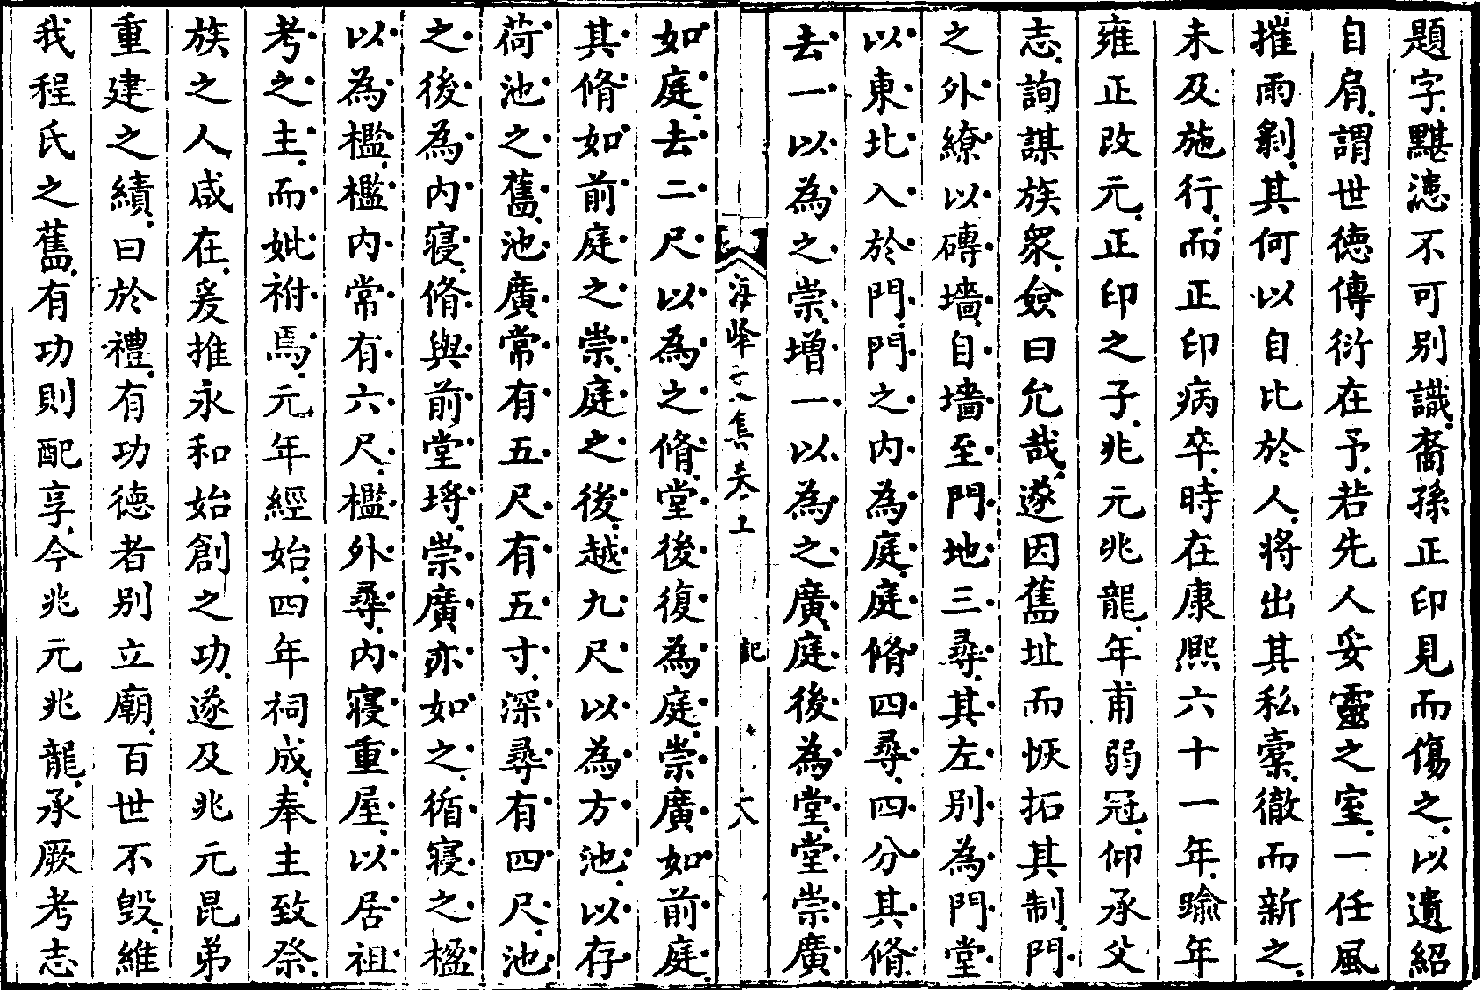 題字黮漶不可別識裔孫正印見而傷之以遺紹
自肩謂世德傳衍在予若先人妥靈之室一任風
摧雨剝其何以自比於人將出其私橐徹而新之
未及施行而正印病卒時在康熙六十一年踰年
雍正改元正印之子兆元兆龍年甫弱冠仰承父
志詢謀族衆僉曰允哉遂因舊址而恢拓其制門
之外繚以磚墻自墻至門地三尋其左別為門堂
以東北入於門門之內為庭庭脩四尋四分其脩
去一以為之崇增一以為之廣庭後為堂堂崇廣
海峰文集卷上 記 六
如庭去二尺以為之脩堂後復為庭崇廣如前庭
其脩如前庭之崇庭之後越九尺以為方池以存
荷池之舊池廣常有五尺有五寸深尋有四尺池
之後為內寢脩與前堂埒崇廣亦如之循寢之楹
以為檻檻內常有六尺檻外尋內寢重屋以居祖
考之主而妣祔焉元年經始四年祠成奉主致祭
族之人咸在爰推永和始創之功遂及兆元昆弟
重建之績曰於禮有功德者別立廟百世不毀維
我程氏之舊有功則配享今兆元兆龍承厥考志